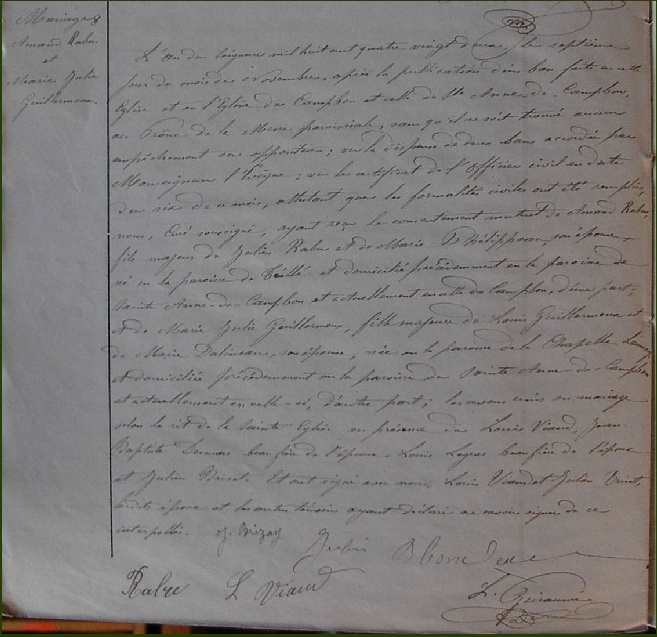 Mariage
Amand Rabu
et
Marie Julie
Guillermeau.
L'an du Seigneur mil huit cent quatre vingt douze, le septième
jour du mois de novembre, après la publication d'un ban faite en cette
Eglise et en l'Eglise de Campbon et celle de Ste Anne de Campbon,
au Prône de la Messe paroissiale, sans qu'il se soit trouvé aucun
empêchement ou opposition ; vu la dispense de deux bans accordée par
Monseigneur l'Evêque ; vu le certificat de l'Officier civil en date
du six de ce mois, attestant que les formalités civiles ont été remplies,
nous, Curé soussigné, ayant reçu le consentement mutuel de Amand Rabu,
fils majeur de Julien Rabu et de Marie Philippeau, son épouse,
né en la paroisse de Teillé et domicilié précédemment en la paroisse de
Sainte Anne-de-Campbon et actuellement en celle de Campbon, d'une part ;
et de Marie Julie Guillermeau, fille majeure de Louis Guillermeau et
de Marie son épouse, née en la paroisse de la Chapelle Launay
et domiciliée précédemment en la paroisse de Sainte Anne-de-Campbon
et actuellement en celle-ci, d'autre part ; les avons unis en mariage
selon le rit de la Sainte Eglise en présence de Louis Viaud, Jean
Baptiste beau frère de l'épouse, Louis Legras beau frère de l'époux
et Julien Et ont signé avec nous, Louis Viaud et Julien
l'époux et les autres témoins ayant déclaré ne savoir signer de ce
interpellés. J. Brizay
Rabu L Viaud